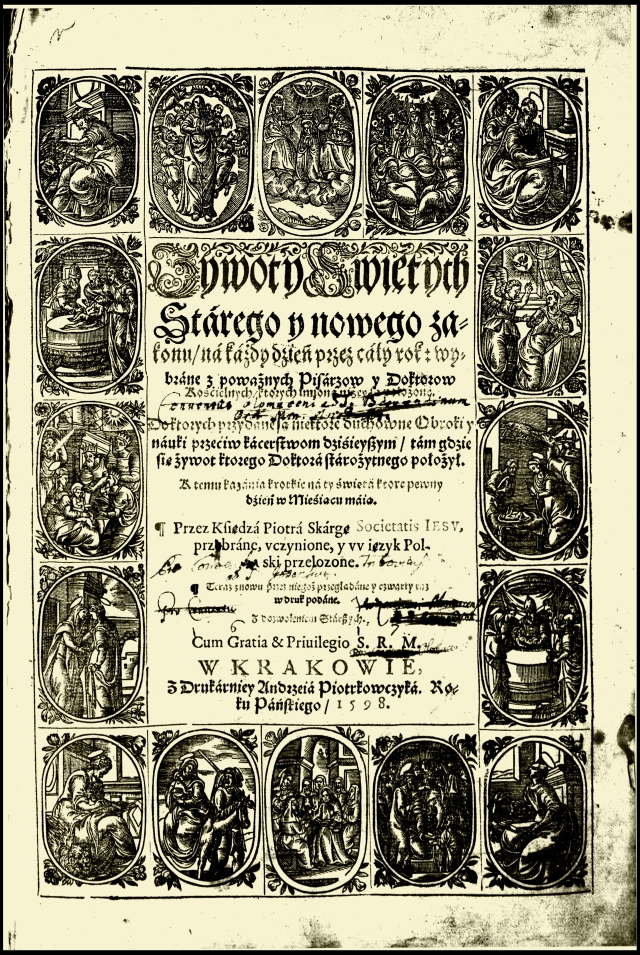 Żywoty Swiętych
Stárego y nowego za-
konu / ná káżdy dzień przez cáły rok : wy-
bráne z poważnych Pisárzow y Doktorow
Kościelnych, ktorych imioná
Doktorych przydane są niektore duchowne Obroki y
náuki przeciw kácerstwom dzisieyszym / tám gdzie
się żywot ktorego Doktorá stárożytnego położył.
K temu kazánia krotkie ná ty świętá ktore pewny
dzień w Mieśiącu máią.
¶ Przez Księdzá Piotrá Skárgę Societatis IESV,
przebráne, vczynione, y vv ięzyk Pol-
ski przelozone.
¶ Teraz znowu przez niegoż przeglądáne y czwarty raz
w druk podáne.
Z dozwoleniem Stárszych.
Cum Gratia & Priuilegio S. R. M.
W KRAKOWIE,
Z Drukárniey Andrzeiá Piotrkowczyká. Ro-
ku Páńskiego / 1598.